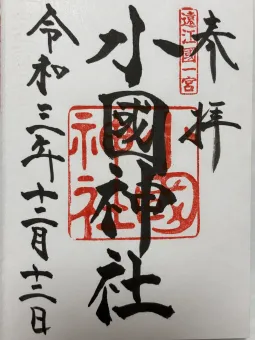 奉拝
遠江國一宮
小國神社
小國神社
令和三年十二月十二日